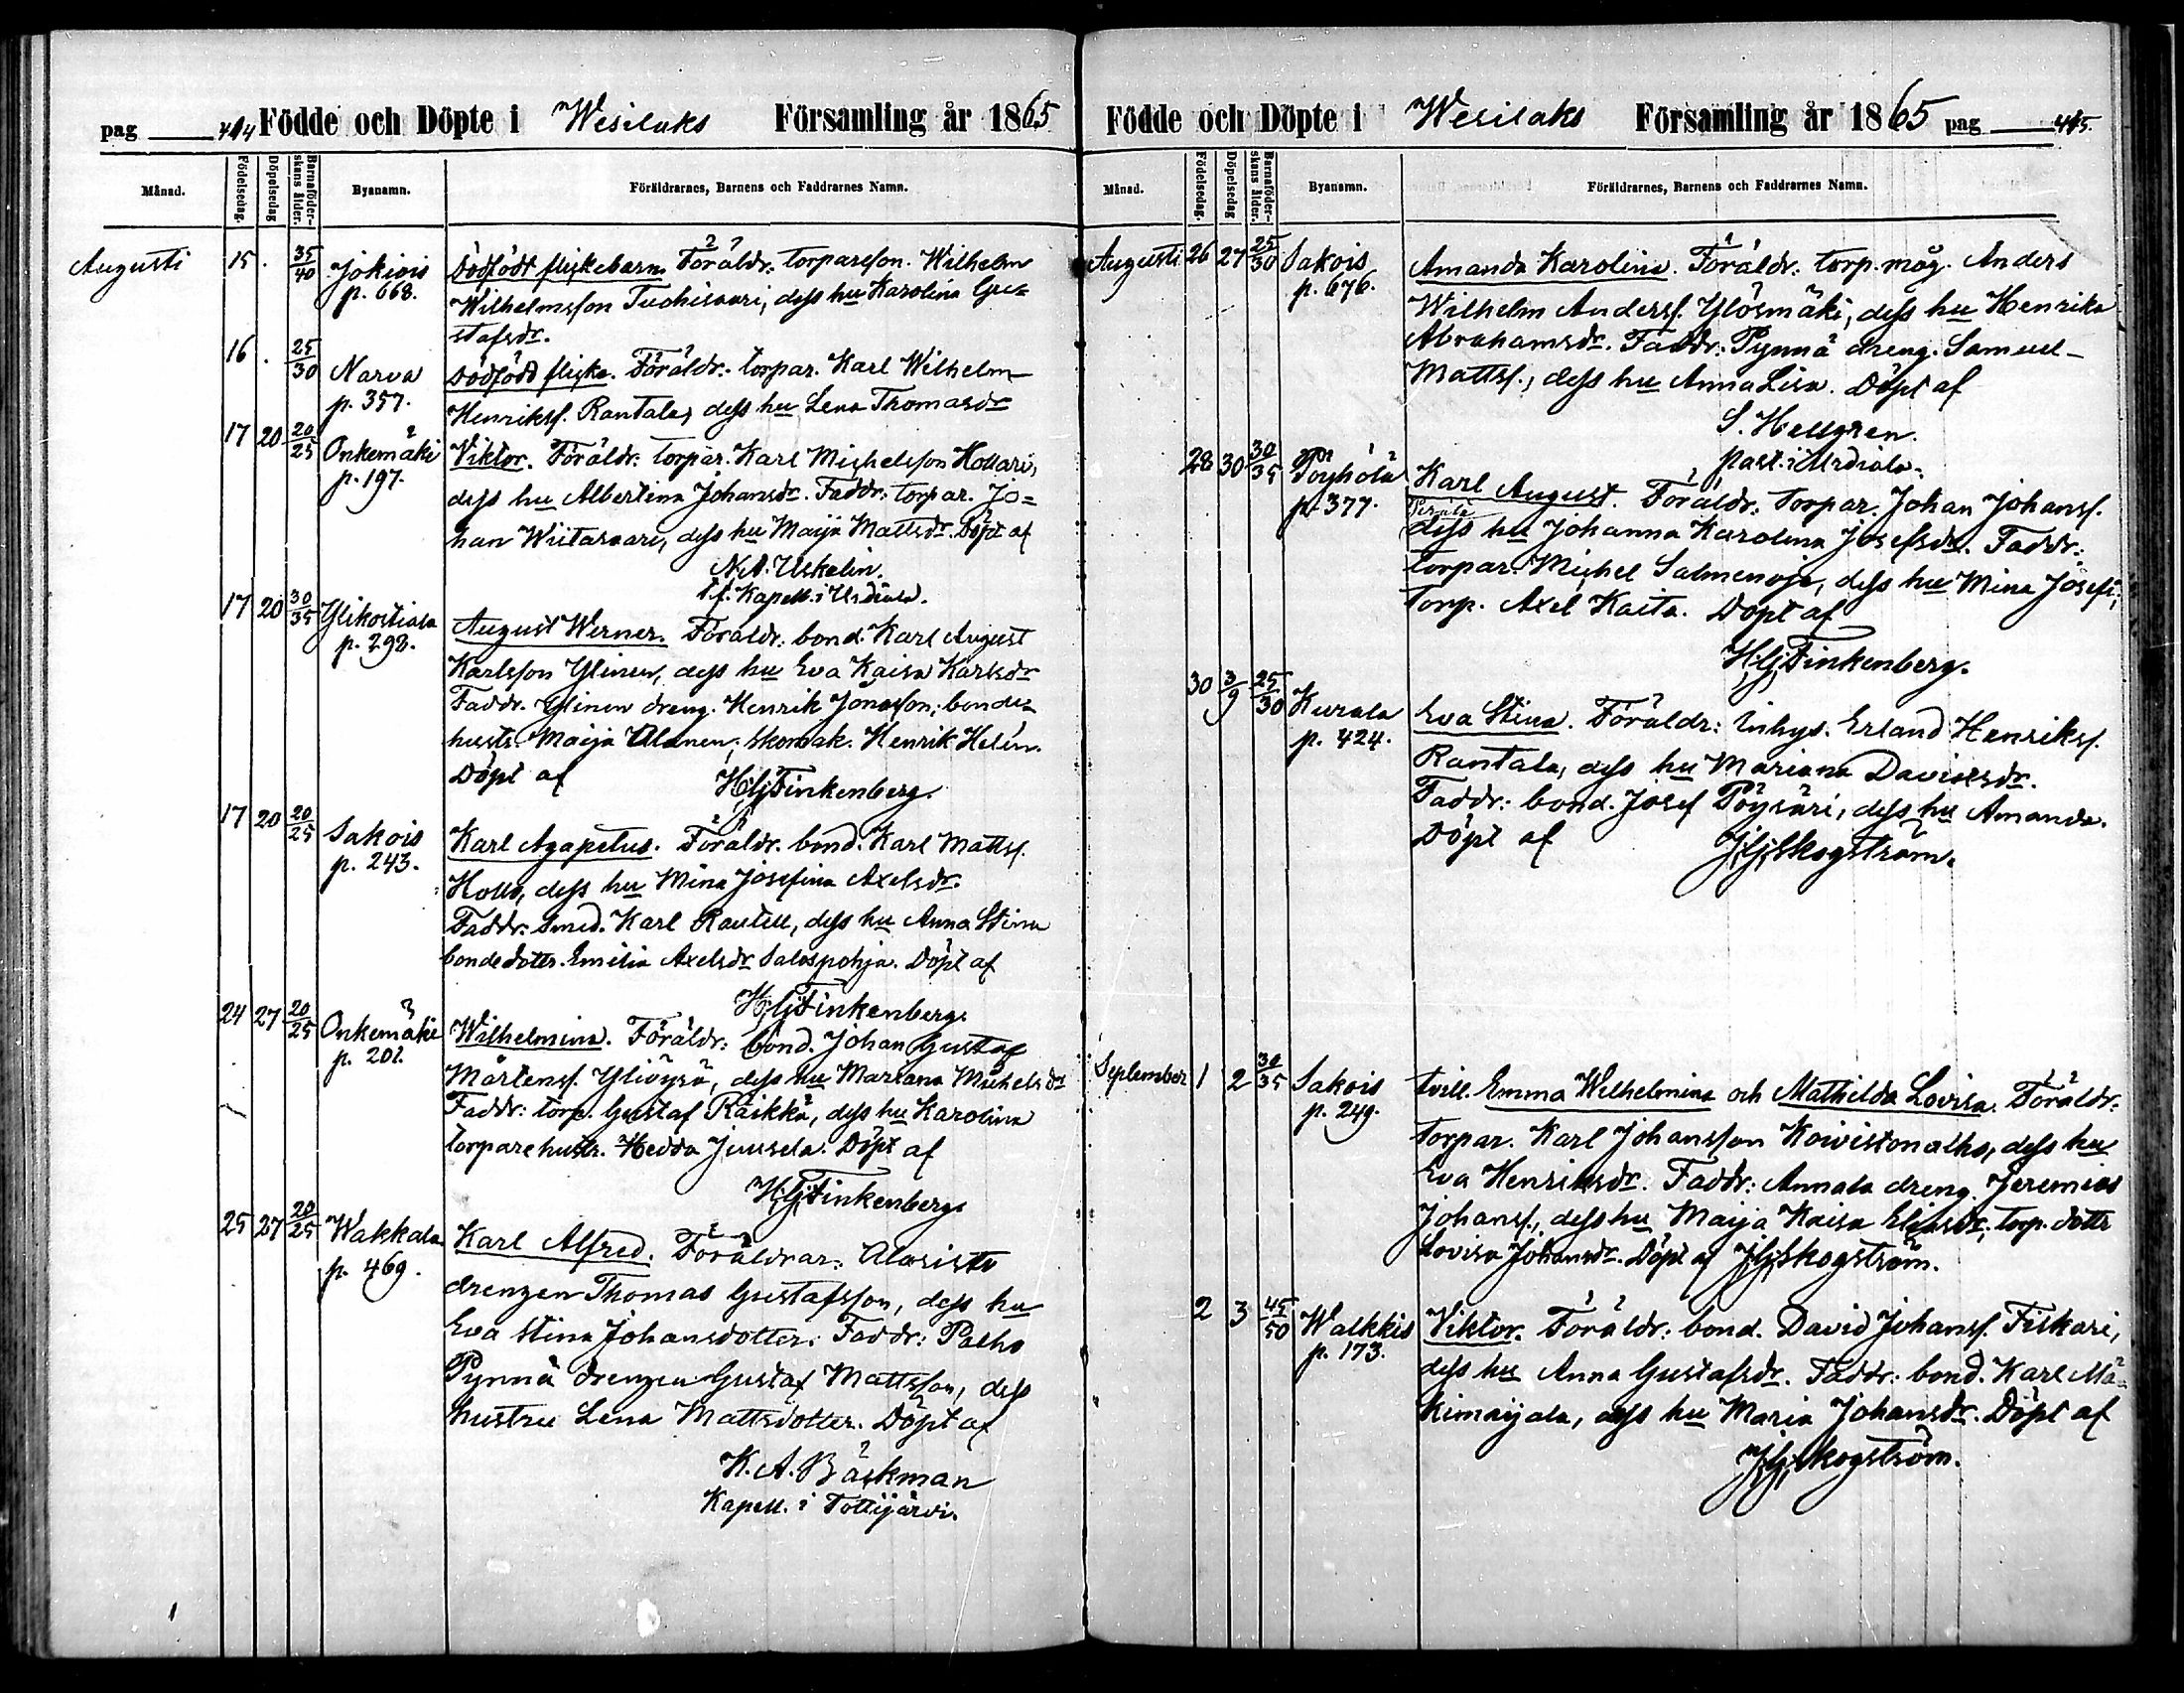 pag 414 Födde och Döpte i Wesilaks Församling år 1865
Månad. Födelsedag. Döpelsedag Barnaföderskans ålder. Byanamn. Föräldrarnes, Barnens och Faddrarnes Namn.
Augusti 15. 35/40 Jokiois p. 668. Dödfödt flickebarn. Föräldr. torpareson. Wilhelm
Wilhelmsson Tuohisaari, dess hu Karolina Gu=
stafsdr.
16. 25/30 Narva p. 357. Dödfödd flicka. Föräldr. torpar. Karl Wilhelm
Henrikss. Rantala, dess hu Lena Thomasdr
17 20 20/25 Onkemäki p. 197. Viktor. Föräldr. torpar. Karl Michelsson Hollari,
dess hu Albertina Johansdr. Faddr. torpar. Jo=
han Wiitasaari, dess hu Maija Mattsdr. Döpt af
N.A. Uskelin.
t.f. Kapell. i Urdiala.
17 20 30/35 Ylikostiala p. 292. August Werner. Föräldr. bond. Karl August
Karlsson Ylinen, dess hu Eva Kaisa Karlsdr
Faddr. Ylinen dreng. Henrik Jonasson; bonde=
hustr. Maija Alanen; skomak. Henrik Helén.
Döpt af H. Hj. Finkenberg.
17 20 20/25 Sakois p. 243. Karl Agapetus. Föräldr. bond. Karl Mattss.
Hollo, dess hu Mina Josefina Axelsdr.
Faddr. smed. Karl Rautell, dess hu Anna Stina
bondedotter. Emilia Axelsdr Salospohja. Döpt af
H. Hj. Finkenberg.
24 27 20/25 Onkemäki p. 201. Wilhelmina. Föräldr. bond. Johan Gustaf
Mårtenss. Yliöysä, dess hu Mariana Michelsdr
Faddr: torp. Gustaf Räikkä, dess hu Karolina
torparehustr. Hedda Juusela. Döpt af
H. Hj. Finkenberg.
25 27 20/25 Wakkala p. 469. Karl Alfred. Föräldrar. Alasisto
drengen Thomas Gustafsson, dess hu
Eva Stina Johansdotter. Faddr: Palho
Pynnä drengen Gustaf Mattsson, dess
hustru Lena Mattsdotter. Döpt af
K. A. Bäckman
Kapell. i Tottijärvi.
Födde och Döpte i Wesilaks Församling år 1865 pag 415.
Månad. Födelsedag. Döpelsedag Barnaföderskans ålder. Byanamn. Föräldrarnes, Barnens och Faddrarnes Namn.
Augusti 26 27 25/30 Sakois p. 676. Amanda Karolina. Föräldr. torp. måg. Anders
Wilhelm Anderss. Ylösmäki, dess hu Henrika
Abrahamsdr. Faddr: Pynnä dreng. Samuel
Mattss., dess hu Anna Lisa. Döpt af
S. Hellgren.
past. i Urdiala.
28 30 30/35 Pöyhölä p. 377. Karl August. Föräldr. torpar. Johan Johanss.
dess hu Johanna Karolina Josefsdr. Faddr.:
torpar. Michel Salmenoja, dess hu Mina Josefi;
torp. Axel Kaita. Döpt af
H. Hj. Finkenberg.
30 3/9 25/30 Kurala p. 424. Eva Stina. Föräldr: inhys. Erland Henrikss.
Rantala, dess hu Mariana Davidsdr.
Faddr: bond. Josef Pöysäri, dess hu Amanda.
Döpt af J. Hj. Skogström.
September 1 2 30/35 Sakois p. 249. tvill. Emma Wilhelmina och Mathilda Lovisa. Föräldr.
torpar. Karl Johansson Koivistonalho, dess hu
Eva Henriksdr. Faddr: Annala dreng. Jeremias
Johanss., dess hu Maija Kaisa Eliasdr; torp. dottr
Lovisa Johansdr. Döpt af J. Hj. Skogström.
2 3 45/50 Walkkis p. 173. Viktor. Föräldr: bond. David Johanss. Fiskari,
dess hu Anna Gustafsdr. Faddr: bond. Karl Mä=
kimaijala, dess hu Maria Johansdr. Döpt af
J. Hj. Skogström.